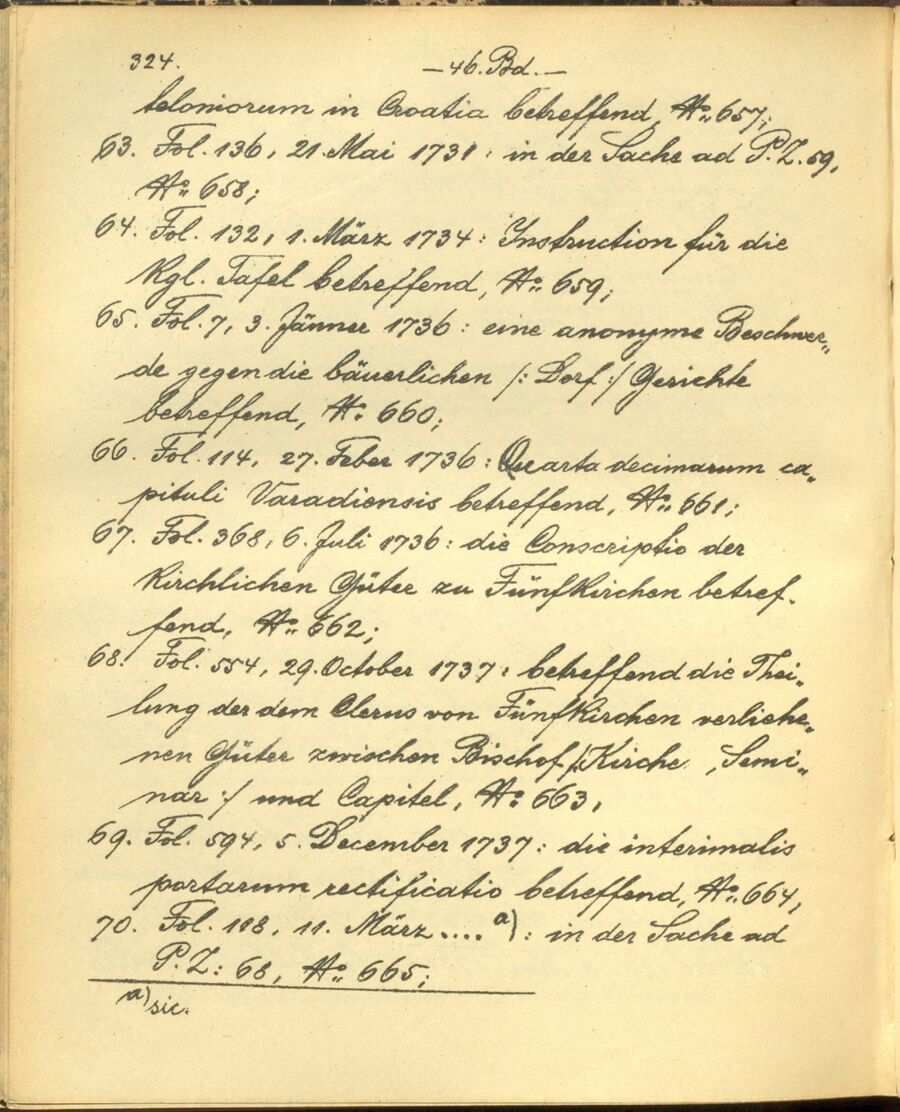 324.
— 46. Bd. —
teloniorum in Croatia betreffend, No. 657;
63. Fol. 136, 21. Mai 1731: in der Sache ad P. Z. 59,
No. 658;
64. Fol. 132, 1. März 1734: Instruction für die
Kgl. Tafel betreffend, No. 659;
65. Fol. 7, 3. Jänner 1736: eine anonyme Beschwer„
de gegen die bäuerlichen /: Dorf :/ Gerichte
betreffend, No. 660;
66. Fol. 114, 27. Feber 1736: Quarta decimarum ca„
pituli Varadiensis betreffend, No. 661;
67. Fol. 368, 6. Juli 1736: die Conscriptio der
Kirchlichen Güter zu Fünfkirchen betref-
fend, No. 662;
68. Fol. 554, 29. October 1737: betreffend die Thei„
lung der dem Clerus von Fünfkirchen verliehe„
nen Güter zwischen Bischof /: Kirche, Semi„
nar :/ und Capitel, No. 663,
69. Fol. 594, 5. December 1737: die interimalis
portarum rectificatio betreffend, No. 664,
70. Fol. 118, 11. März .... a): in der Sache ad
P. Z: 68, No. 665;
a) sic.